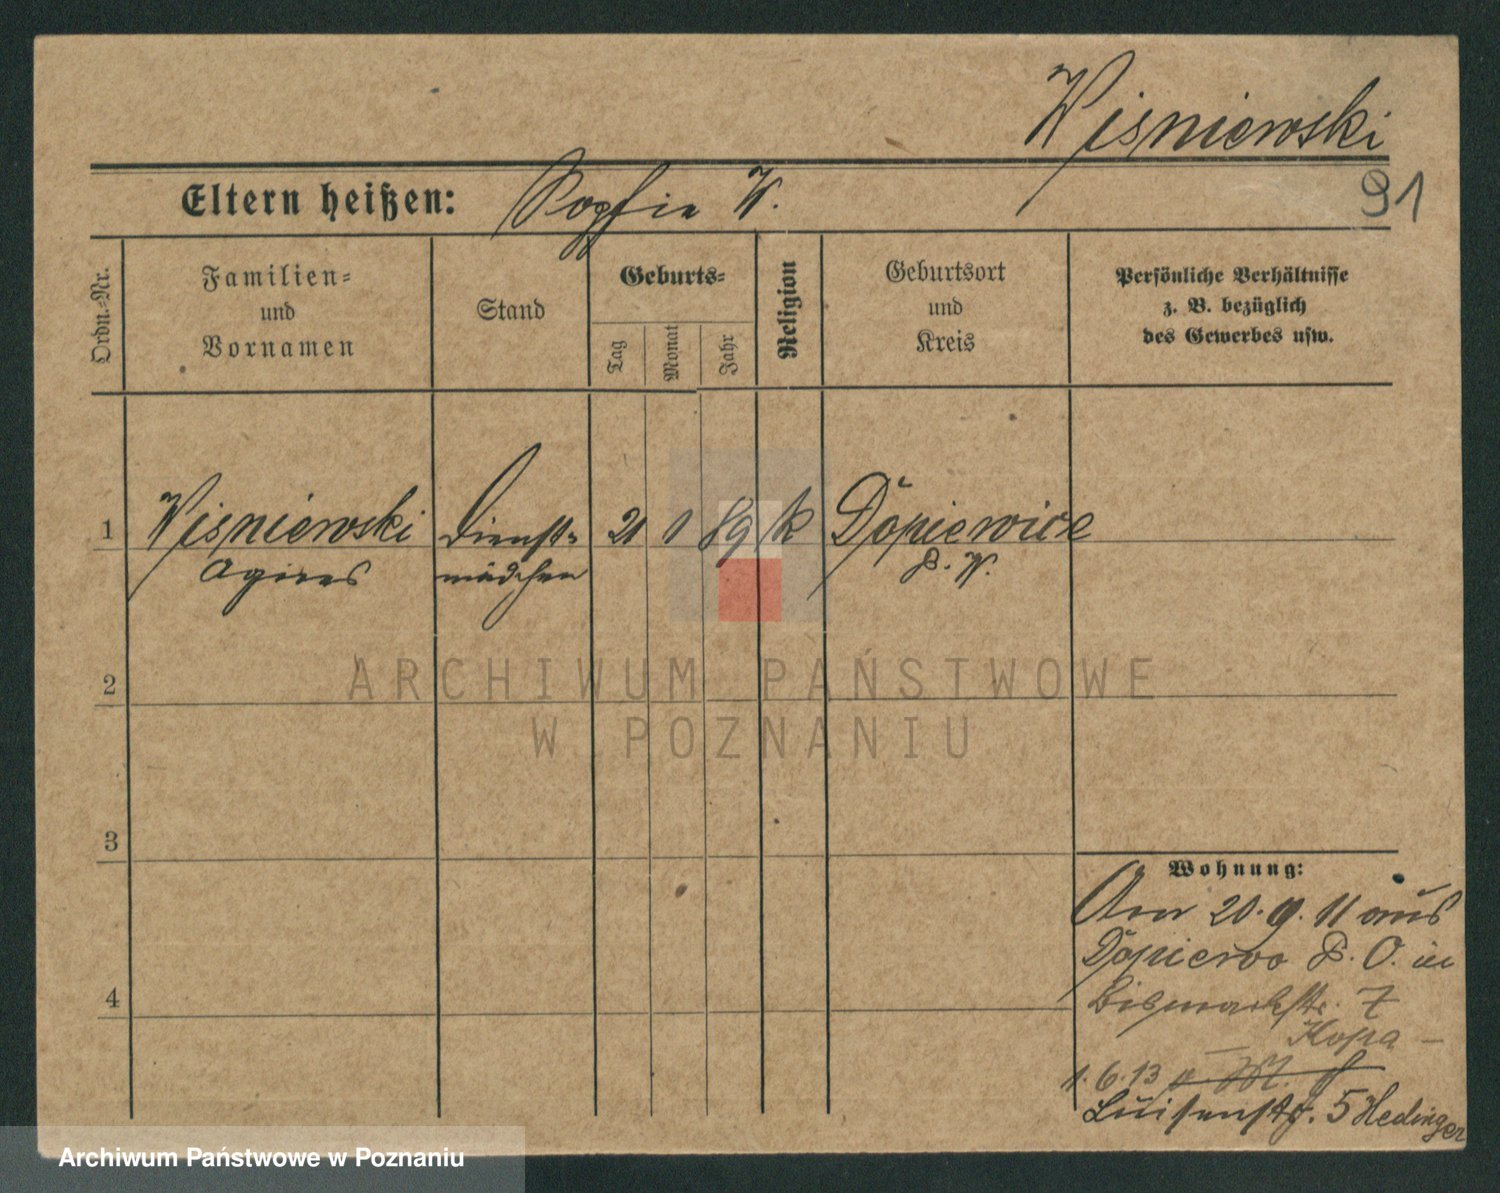 Wisniewski
Eltern heißen: Sophie W.
91
Ordn.-Nr.
Familien-
und
Vornamen
Stand
Geburts-
Tag
Monat
Jahr
Religion
Geburtsort
und
Kreis
Persönliche Verhältnisse
z. B. bezüglich
des Gewerbes usw.
1 Wisniewski Dienst- 21 1 89 k Dopiewice
Agnes mädchen P. W.
2
3
4
Wohnung:
Am 20. 9. 11 aus
Dopiewo P. O. in
Bismarckstr. 7
Kopa
1. 6. 13
Luisenstr. 5 Hedinger
ARCHIWUM PAŃSTWOWE
W POZNANIU
Archiwum Państwowe w Poznaniu